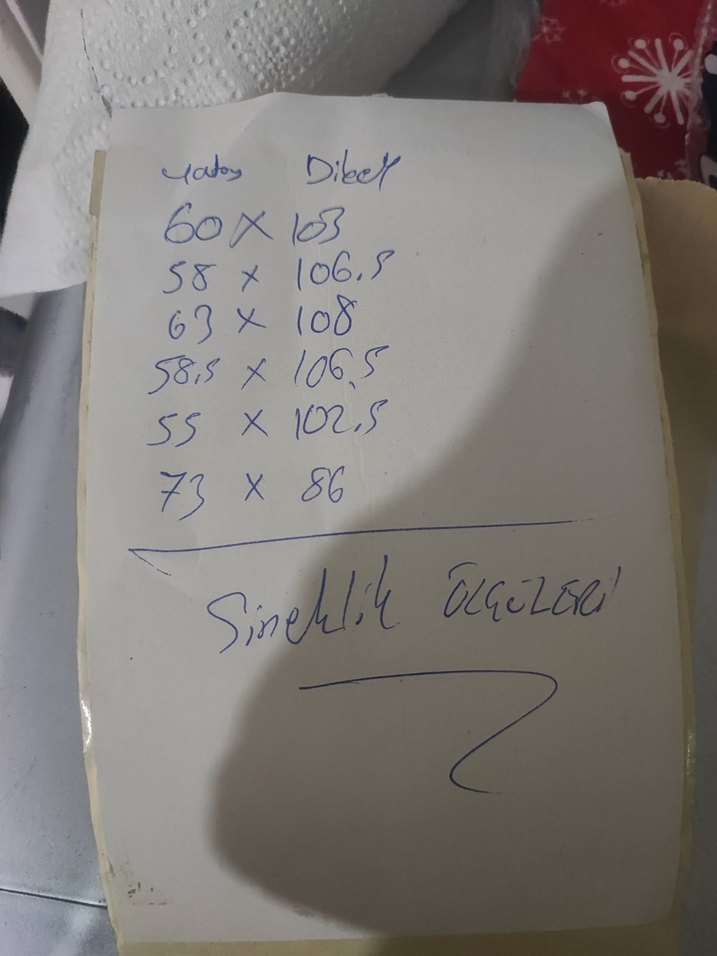 Yatay Dikey
60 X 103
58 x 106.5
63 x 108
58.5 x 106.5
55 x 102.5
73 x 86
Sineklik ÖLÇÜLERİ